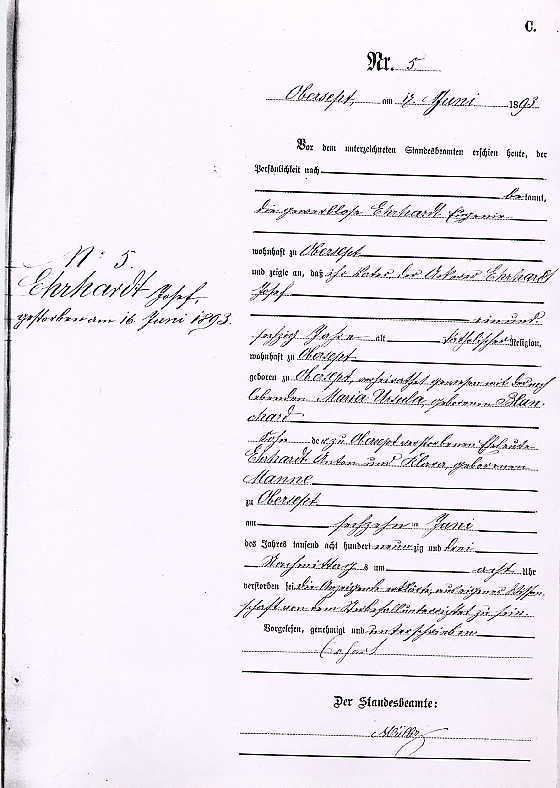 C.
Nr. 5
Obersept, am 17. Juni 1893
Vor dem unterzeichneten Standesbeamten erschien heute, der
Persönlichkeit nach
bekannt,
die gewerblose Ehrhardt Eugenie
wohnhaft zu Obersept
und zeigte an, daß ihr Vater, der Ackerer Ehrhardt
Josef
ein und
sechzig Jahre alt katholischer Religion,
wohnhaft zu Obersept
geboren zu Obersept, verheirathet gewesen mit der noch
lebenden Maria Ursula, geborenen Blan
chard
Sohn der zu Obersept verstorbenen Eheleute
Ehrhardt Anton und Klara, geborenen
Manne
zu Obersept
am sechzehn Juni
des Jahres tausend acht hundert neunzig und drei
Nachmittags um acht Uhr
verstorben sei. Die Anzeigende erklärte, aus eigener Wissen
schaft von dem Sterbefall unterrichtet zu sein.
Vorgelesen, genehmigt und unterschrieben
Der Standesbeamte:
No 5.
Ehrhardt Josef,
gestorben am 16 Juni 1893.